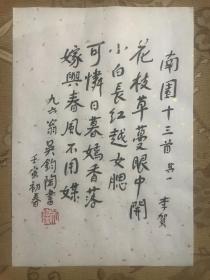 南園十三首 其一 李賀
花枝草蔓眼中開
小白長紅越女腮
可憐日暮嫣香落
嫁與春風不用媒
九六翁吳鈞陶書
壬寅初春